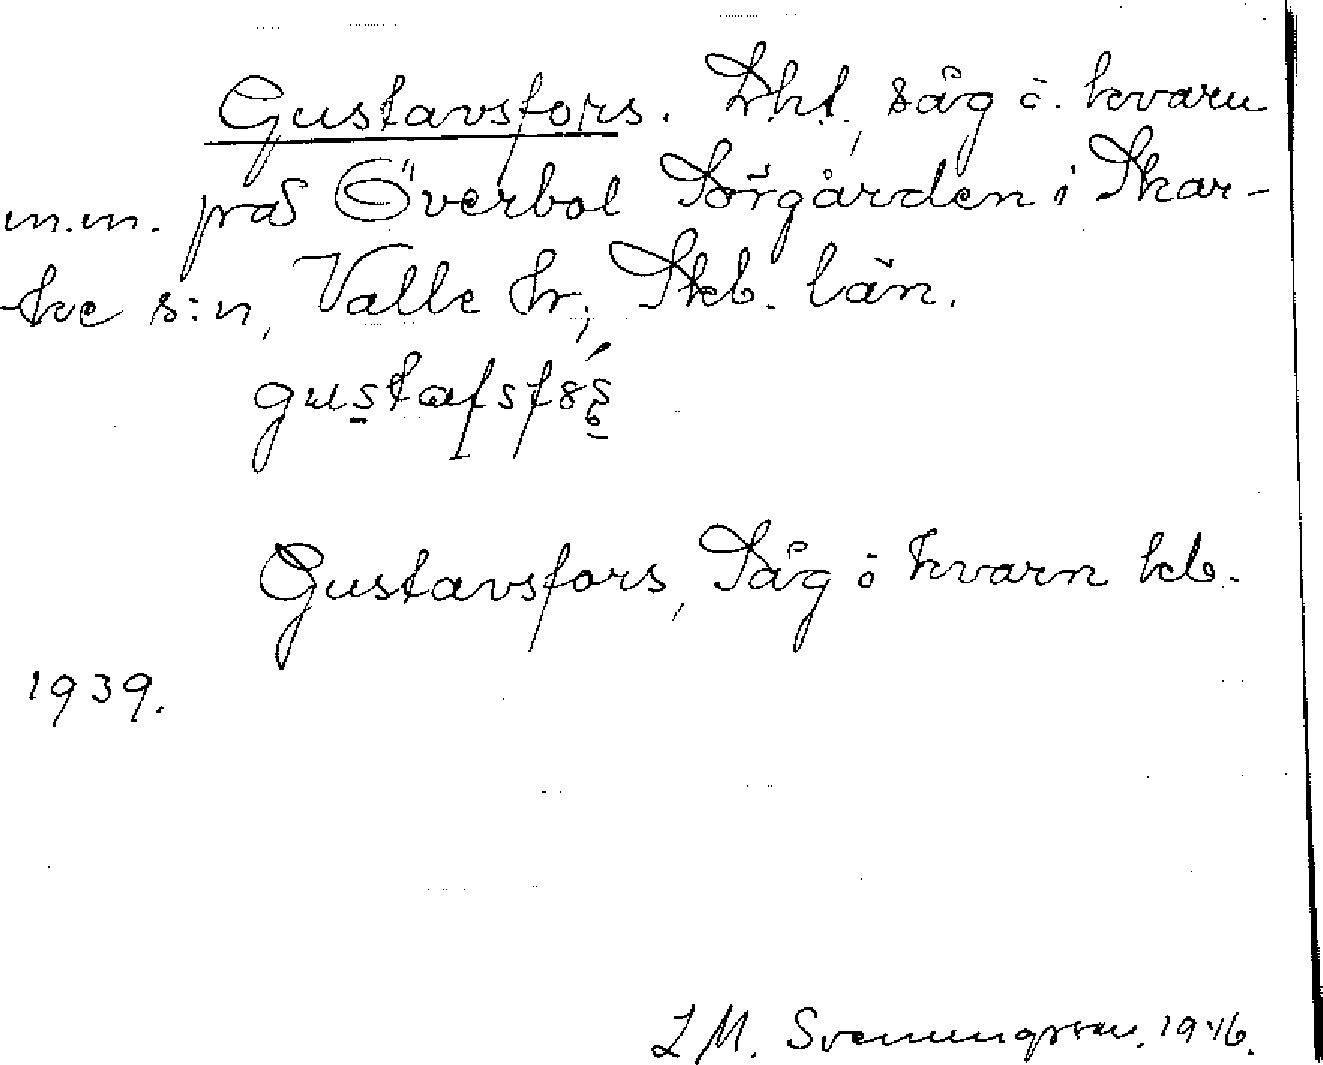 Gustavsfors. Lht, såg o. kvarn
m.m. på Överbol Sörgården i Skar-
ke s:n, Valle hr, Skb. län.
gustafsfɷ́s̨
Gustavsfors, Såg o kvarn kb.
1939.
L M. Svenungsson. 1946.